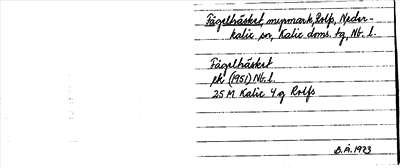 Fågelträsket, myrmark, Rolfs, Neder-
kalix sn, Kalix doms. tg, Nb. l.
Fågelträsket
ek (1951) Nb. l.
25 M Kalix 4 g Rolfs
B.Å. 1973